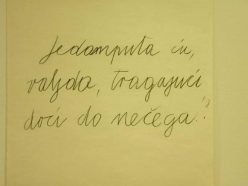 Jedamputa ću,
valjda, tragajući
doći do nečega!